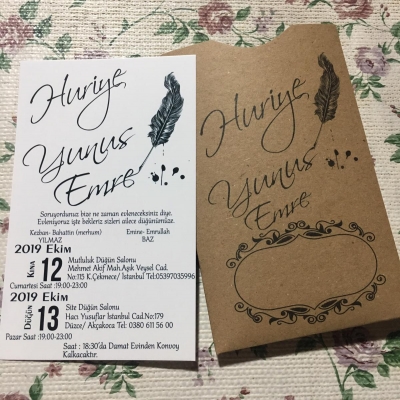 Huriye
Yunus
Emre
Soruyordunuz bize ne zaman evleneceksiniz diye.
Evleniyoruz işte bekleriz sizleri ailece düğünümüze.
Kezban- Bahattin (merhum)
YILMAZ
Emine- Emrullah
BAZ
2019 Ekim
Kına 12
Mutluluk Düğün Salonu
Mehmet Akif Mah.Aşık Veysel Cad.
No:115 K.Çekmece/ İstanbul Tel:05397035996
Cumartesi Saat :19:00-23:00
2019 Ekim
Düğün 13
Site Düğün Salonu
Hacı Yusuflar İstanbul Cad.No:179
Düzce/ Akçakoca Tel: 0380 611 56 00
Pazar Saat :19:00-23:00
Saat : 18:30'da Damat Evinden Konvoy
Kalkacaktır.
Huriye
Yunus
Emre